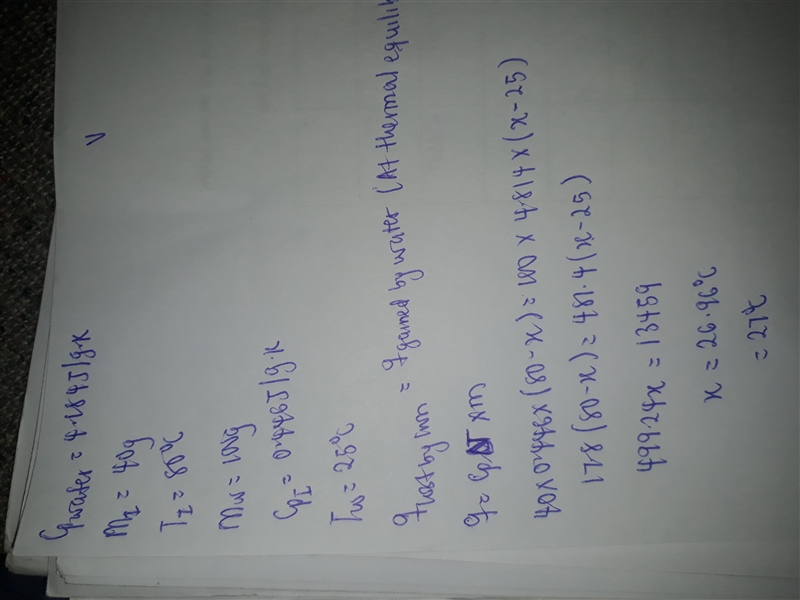 Cpwater = 4.184J/g.K
MI = 40g
TI = 80°C
Mw = 100g
CpI = 0.446J/g.K
Tw = 25°C
qlost by iron = qgained by water (At thermal equilib
q = CpΔT xm
40x0.446x(80-x) = 100 x 4.814 x (x-25)
178(80-x) = 481.4(x-25)
499.24x = 13459
x = 26.96°C
= 27°C